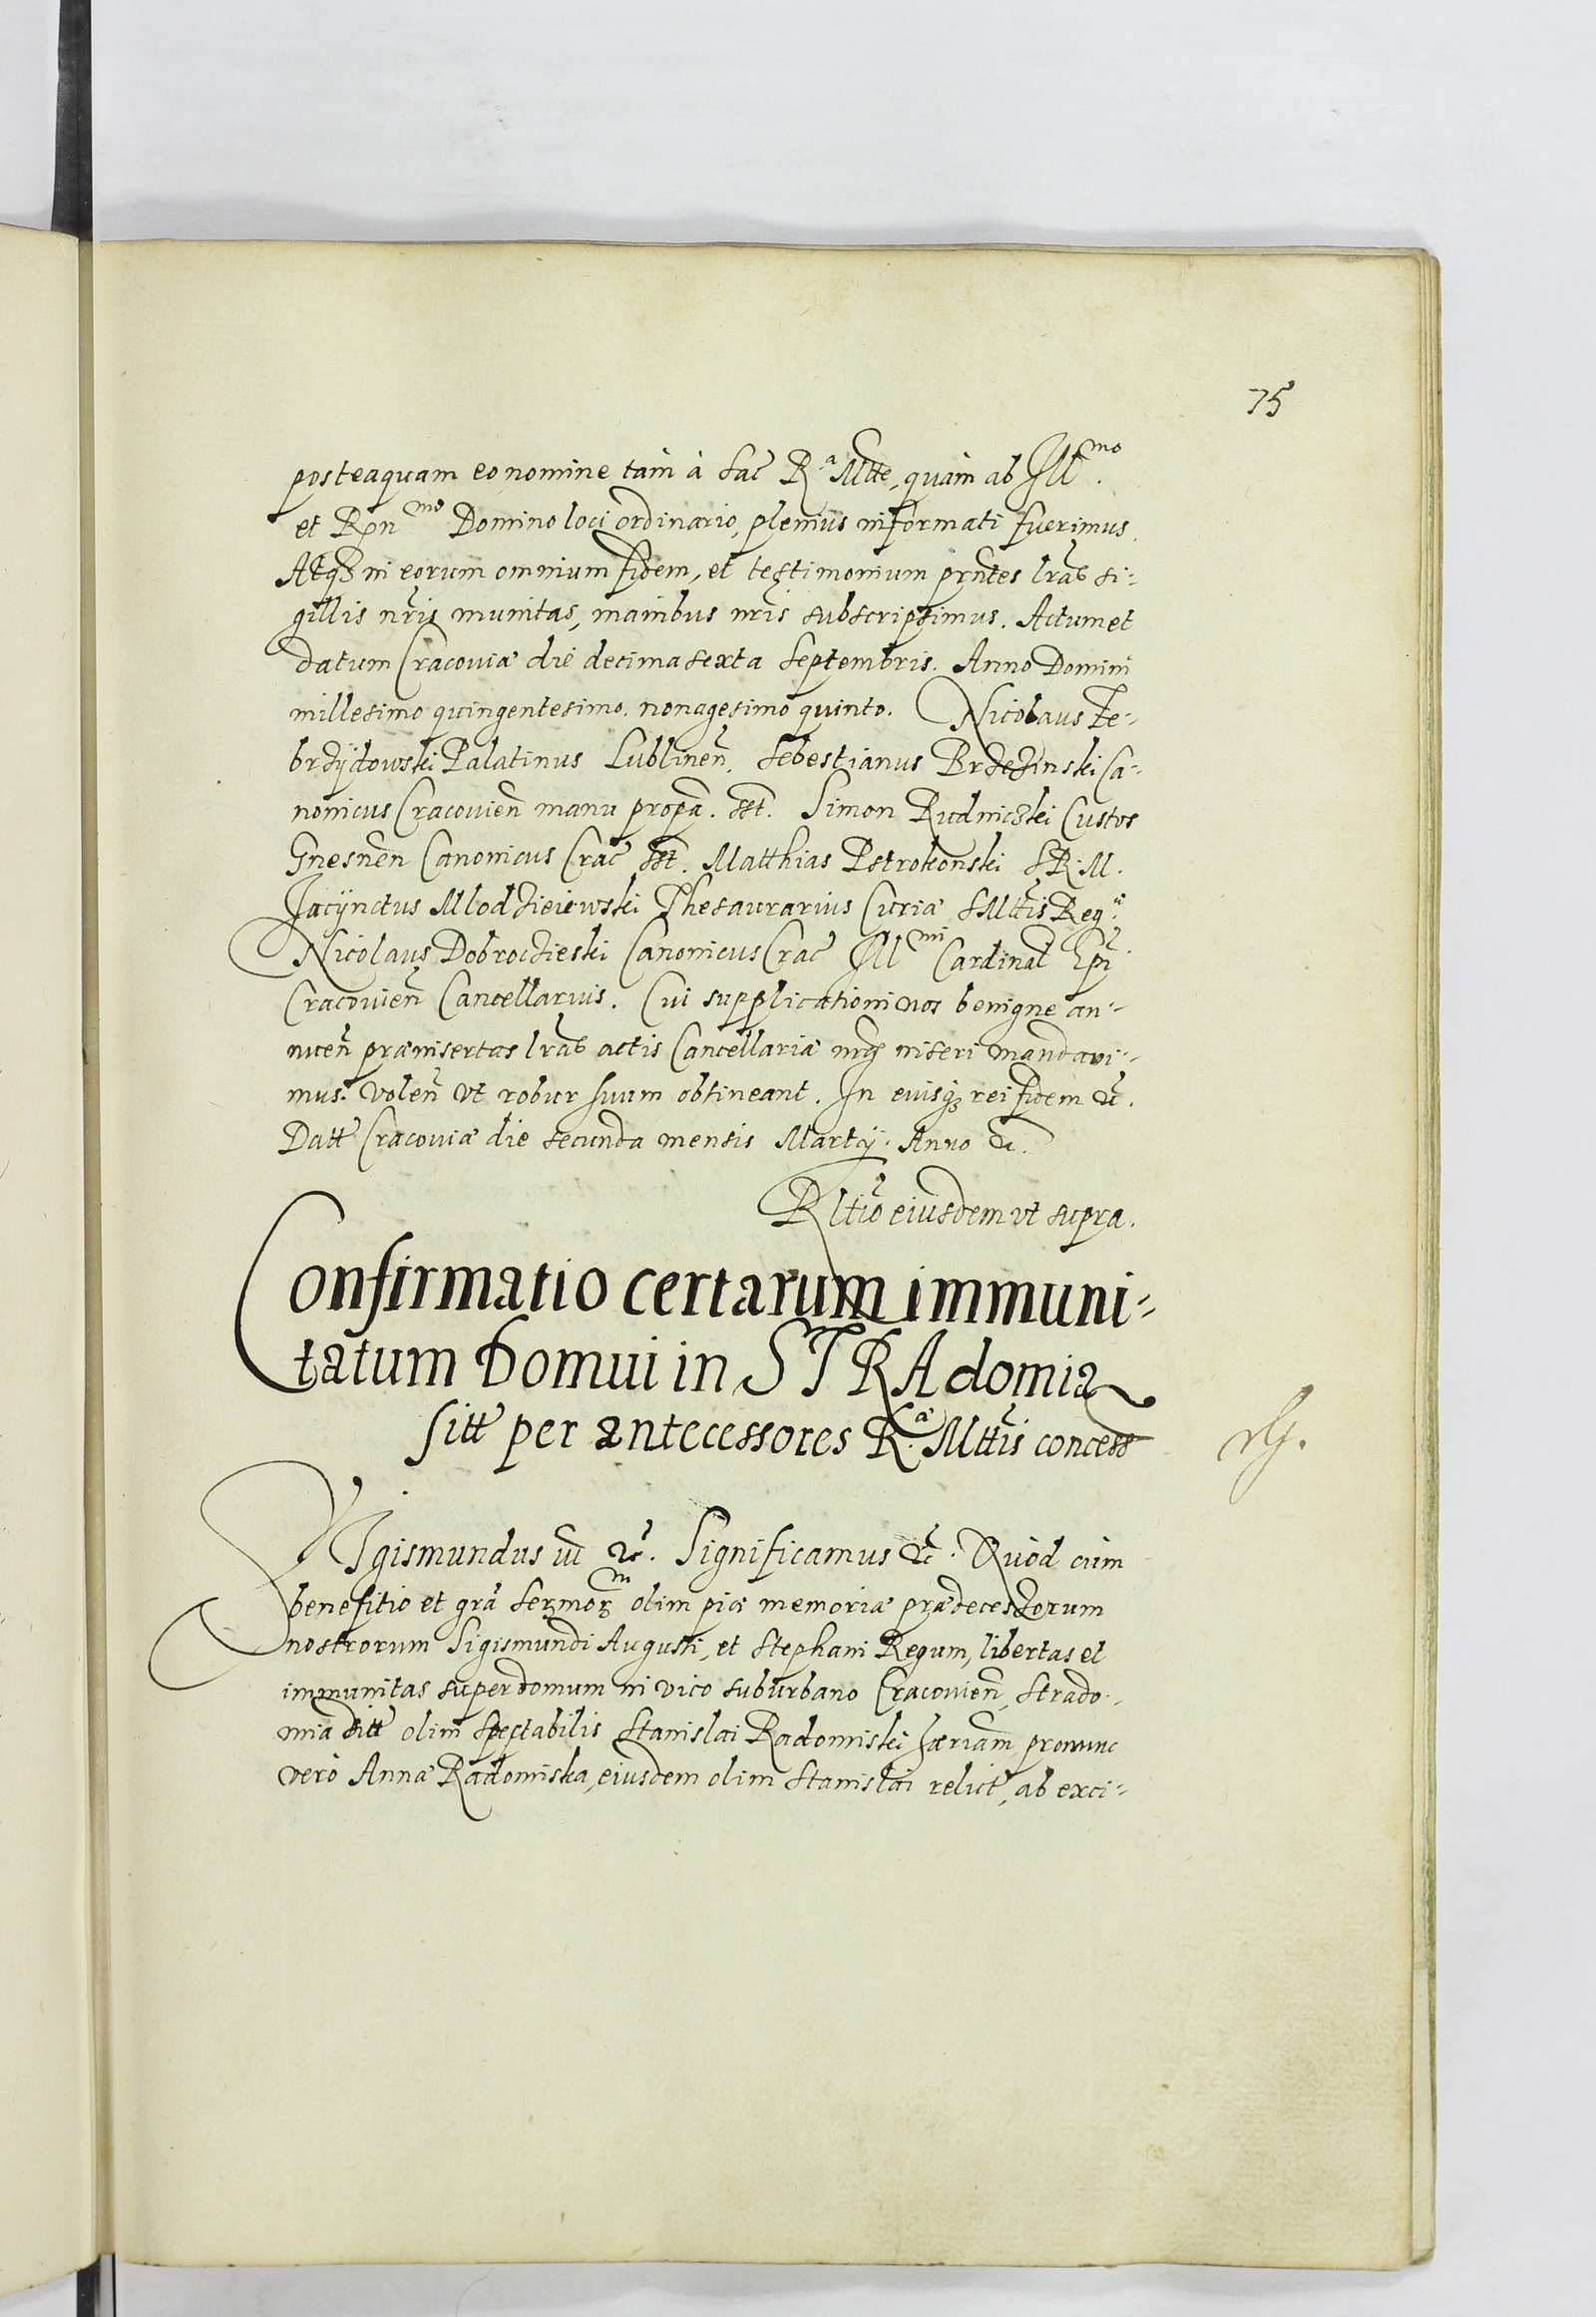 75
posteaquam eo nomine tam à Sac R.ª Mtte, quàm ab Ill.mo
et Rñ mo Domino loci ordinario, plenius informati fuerimus.
Atqз in eorum omnium fidem, et testimonium prñtes lrãs si-
gillis nr̃is munitas, manibus nr̃is subscripsimus. Actum et
datum Cracouiæ die decima sexta Septembris. Anno Domini
millesimo quingentesimo. nonagesimo quinto. Nicolaus Ze-
brzÿdowski Palatinus Lublineñ. Sebestianus Brzezinski Ca-
nonicus Cracovieñ manu propã. sst. Simon Rudniczki Custos
Gnesneñ Canonicus Crac̃ sst. Matthias Pstrokonski S.R.M.
Jacÿnctus Mlodzieiewski Thesaurarius Curiæ SMttis Reg.æ
Nicolaus Dobroczieski Canonicus Crac̃ Ill mi Cardinal Ep̃i
Cracovieñ Cancellarius. Cui supplicationi nos benigne an-
nueñ præinsertas lrãs actis Cancellariæ nr̃æ inseri mandavi-
mus. Voleñ vt robur suum obtineant. In cuius qз rei fidem &c̃.
Datt Cracouiæ die secunda mensis Martij. Anno &c.
Rltio eiusdem vt supra.
Confirmatio certarum immuni-
tatum Domui in STRAdomia
sitt per antecessores R.æ Mttis concess
SIgismundus iii &c̃. Significamus &c̃. Quòd cùm
benefitio et grã Sermor m olim piæ memoriæ prædecessorum
nostrorum Sigismundi Augusti, et Stephani Regum, libertas et
immunitas super domum in vico suburbano Cracovieñ, Strado-
mia sitt olim Spectabilis Stanislai Radomiski pronunc
verò Annæ Radomiska, eiusdem olim Stanislai relict, ab exci-